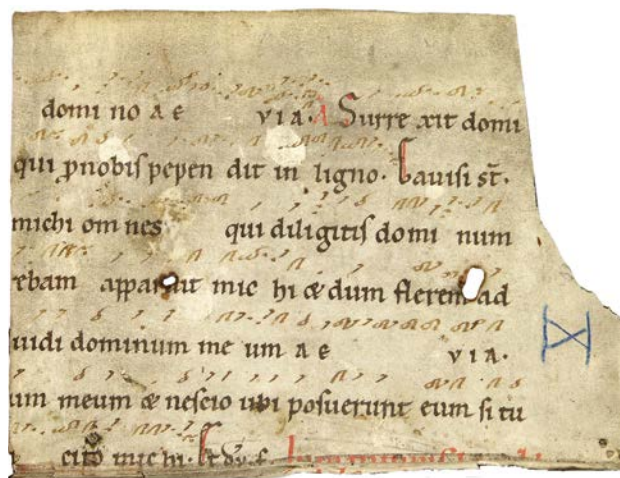 domi no a e via. A Surre xit domi
qui pnobis pepen dit in ligno. Gavisi st.
michi om nes qui diligitis domi num
rebam apparuit mic hi & dum flerem ad
uidi dominum me um a e via.
um meum & nescio ubi posuerunt eum si tu
cito michi.